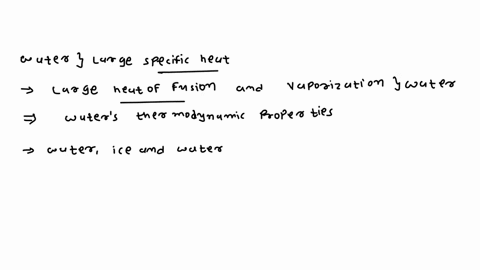 water } Large specific heat
→ Large heat of fusion and vaporization } water
⇒ water's thermodynamic properties
→ water, ice and water